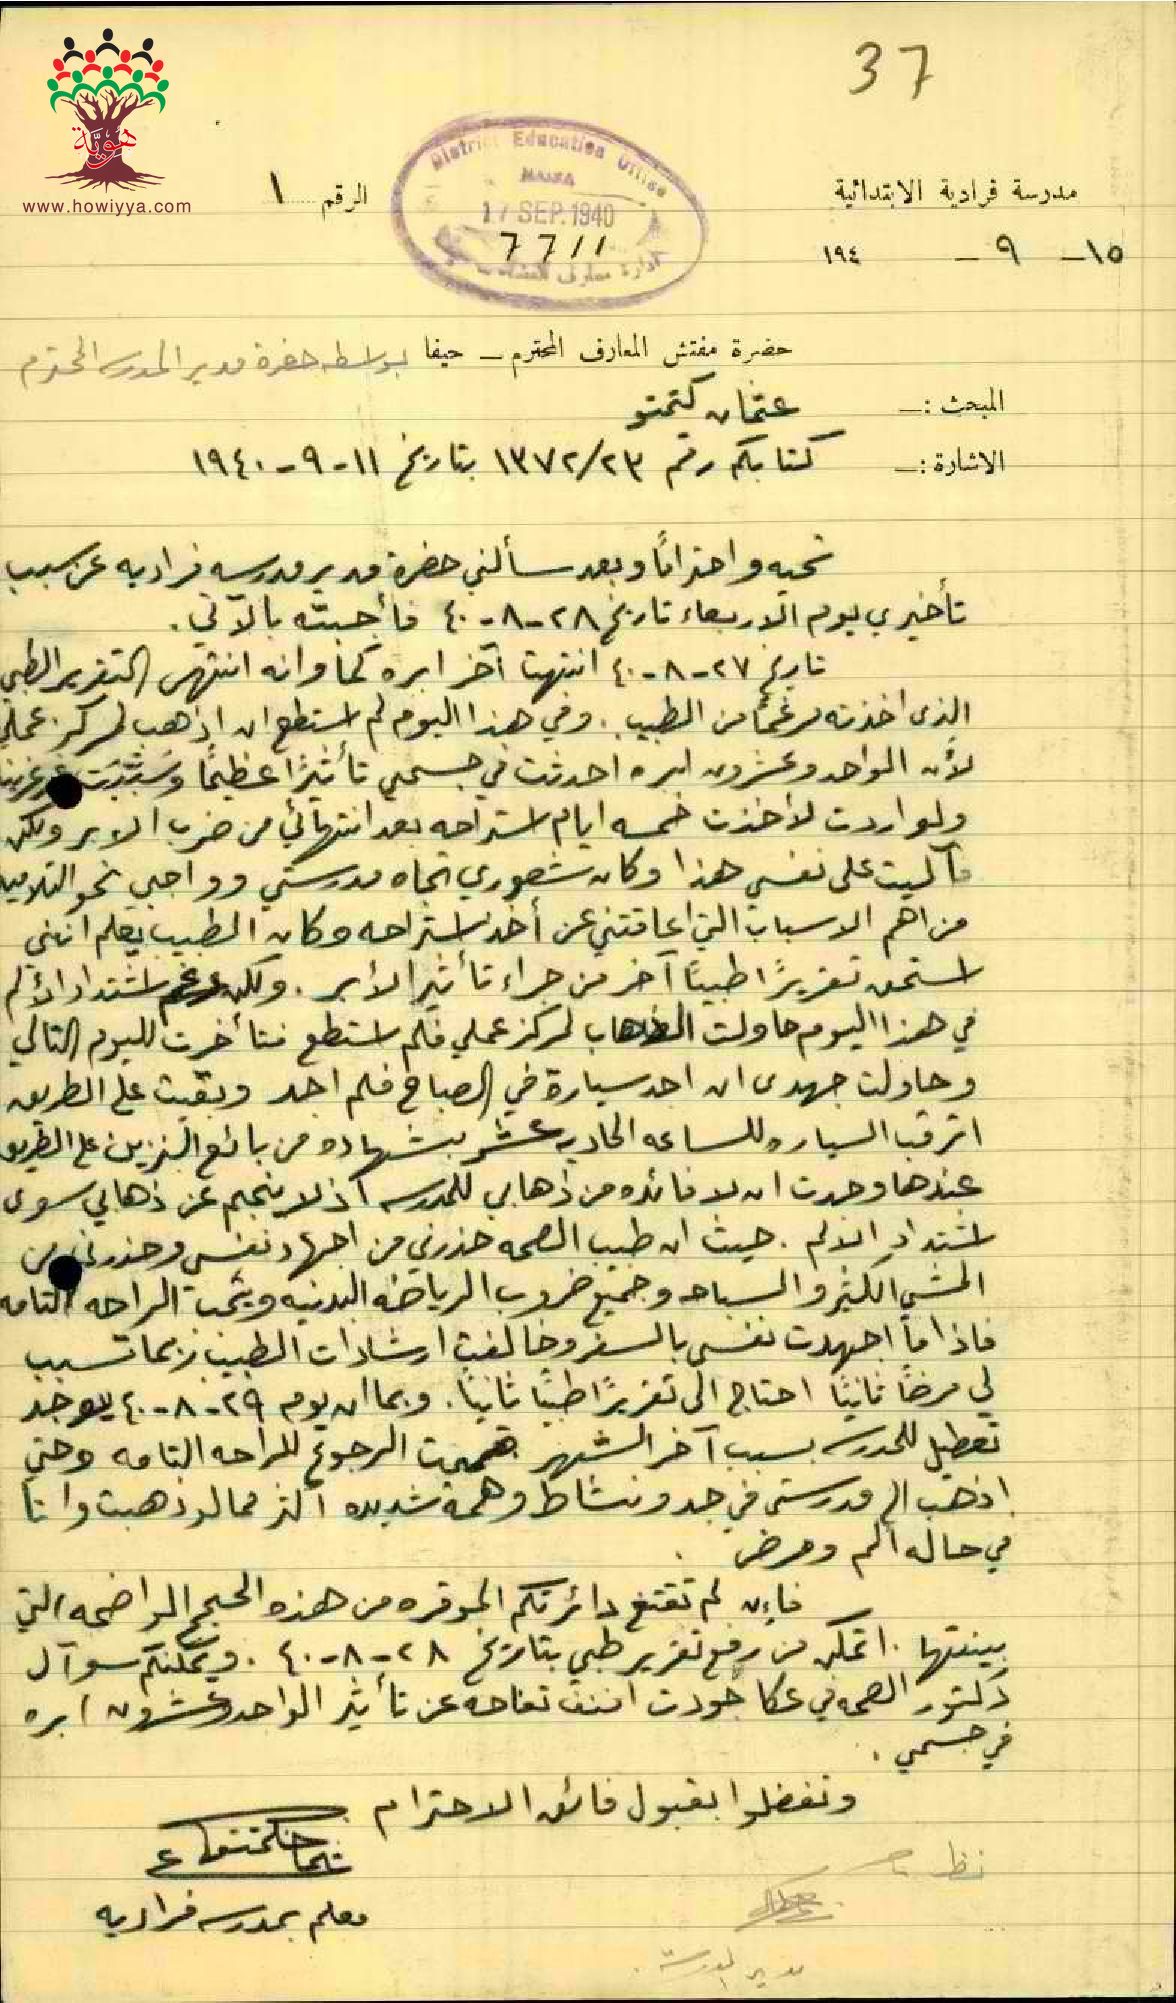 37
هوية
www.howiyya.com
District Education Office
HAIFA
17 SEP. 1940
7711
مدرسة فرادية الابتدائية
الرقم ١
١٥ - ٩ - ١٩٤
حضرة مفتش المعارف المحترم - حيفا بواسطه حضرة مدير المدرسه المحترم
المبحث :- عثمان كتمتو
الاشارة :- كتابكم رقم ١٣٧٢/٢٣ بتاريخ ١١-٩-١٩٤٠
تحيه واحتراماً وبعد سألني حضرة مدير مدرسه فراديه عن سبب
تأخيري يوم الاربعاء تاريخ ٢٨-٨-٤٠ فأجبته بالآتي .
تاريخ ٢٧-٨-٤٠ انتهت آخر ابره كما وانه انتهى التقرير الطبي
الذي اخذته مرغماً من الطبيب . وفي هذا اليوم لم استطع ان اذهب لمركز عملي
لأن الواحد وعشرون ابره احدثت في جسمي تأثيراً عظيماً
ولو اردت لأخذت خمسه ايام استراحه بعد انتهائي من ضرب الابر ولكن
فآليت على نفسي هذا وكان شعوري تجاه مدرستي وواجبي نحو التلاميذ
من اهم الاسباب التي اعاقتني عن أخذ استراحه وكان الطبيب يعلم انني
استحق تقريراً طبياً آخر من جراء تأثير الأبر . ولكن رغم اشتداد الألم
في هذا اليوم حاولت الذهاب لمركز عملي فلم استطع فتأخرت لليوم التالي
وحاولت جهدي ان اجد سيارة في الصباح فلم اجد وبقيت على الطريق
اترقب السياره للساعه الحاديه عشر بشهاده من بائع البنزين على الطريق
عندها وجدت ان لا فائده من ذهابي للمدرسه اذ لا ينجم عن ذهابي سوى
اشتداد الالم . حيث ان طبيب الصحه حذرني من اجهاد نفسي وحذرني من
المشي الكثير والسباحه وجميع ضروب الرياضه البدنيه ويجب الراحه التامه
فاذا ما اجهدت نفسي بالسفر وخالفت ارشادات الطبيب ربما تسبب
لي مرضاً ثانياً احتاج الى تقريراً طبياً ثانياً . وبما ان يوم ٢٩-٨-٤٠ يوجد
تعطيل للمدرسه بسبب آخر الشهر الرجوع للراحه التامه وحتى
اذهب الى مدرستي في جد ونشاط وهمة شديده اكثر مما لو ذهبت وانا
في حاله ألم ومرض .
فإن لم تقتنع دائرتكم الموقره من هذه الحجج الواضحه التي
بينتها . اتمكن من رفع تقرير طبي بتاريخ ٢٨-٨-٤٠ . ويمكنكم سوآل
دكتور الصحه في عكا جودت افندي تفاحه عن تأثير الواحد وعشرون ابره
في جسمي .
وتفضلوا بقبول فائق الاحترام
معلم بمدرسه فراديه
نظر
مدير المدرسة